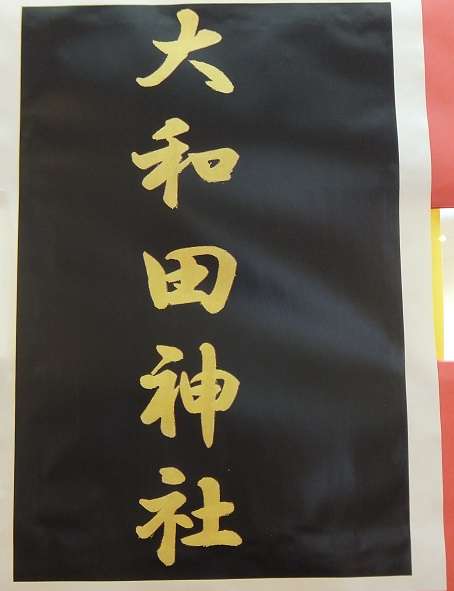 大和田神社